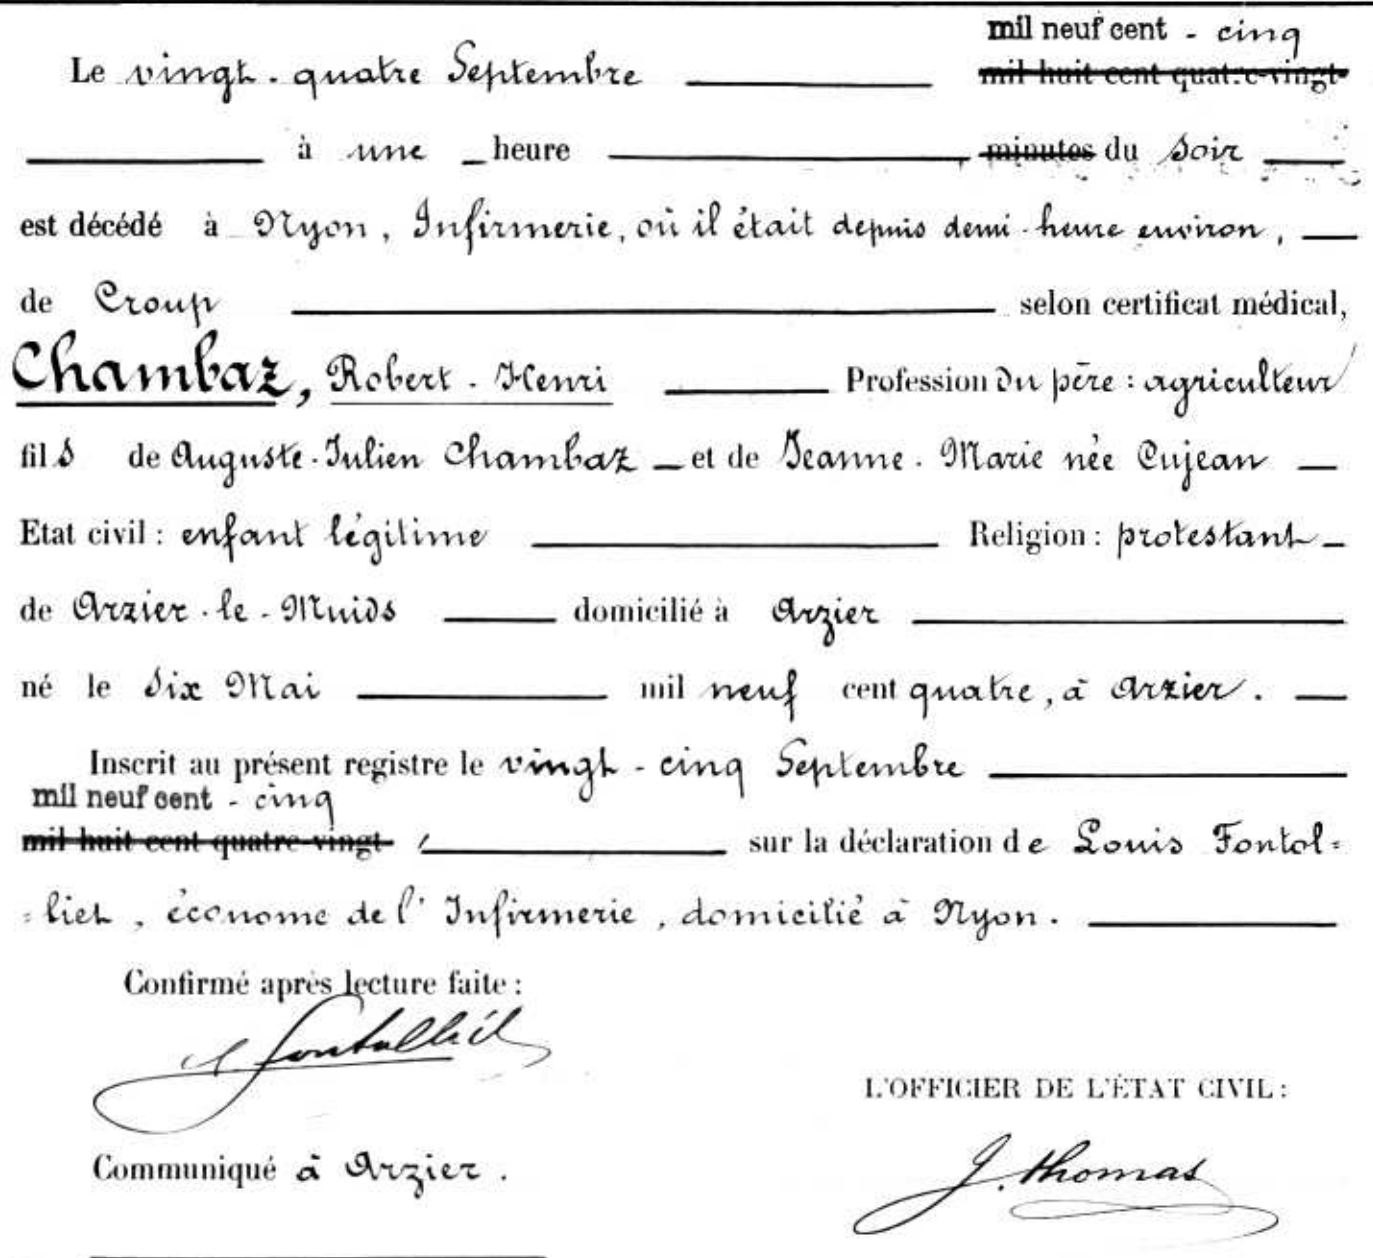 mil neuf cent - cinq
Le vingt-quatre Septembre mil huit cent quatre-vingt-
à une heure minutes du soir
est décédé à Nyon, Infirmerie, où il était depuis demi-heure environ,
de Croup selon certificat médical,
Chambaz, Robert-Henri Profession du père : agriculteur
fils de Auguste-Julien Chambaz et de Jeanne-Marie née Cujean
Etat civil : enfant légitime Religion : protestant
de Arzier-le-Muids domicilié à Arzier
né le six Mai mil neuf cent quatre, à Arzier.
Inscrit au présent registre le vingt-cinq Septembre
mil neuf cent - cinq
mil huit cent quatre-vingt- sur la déclaration de Louis Fontol=
=liet, économe de l'Infirmerie, domicilié à Nyon.
Confirmé après lecture faite :
L Fontolliet
L'OFFICIER DE L'ÉTAT CIVIL :
Communiqué à Arzier.
J. Thomas